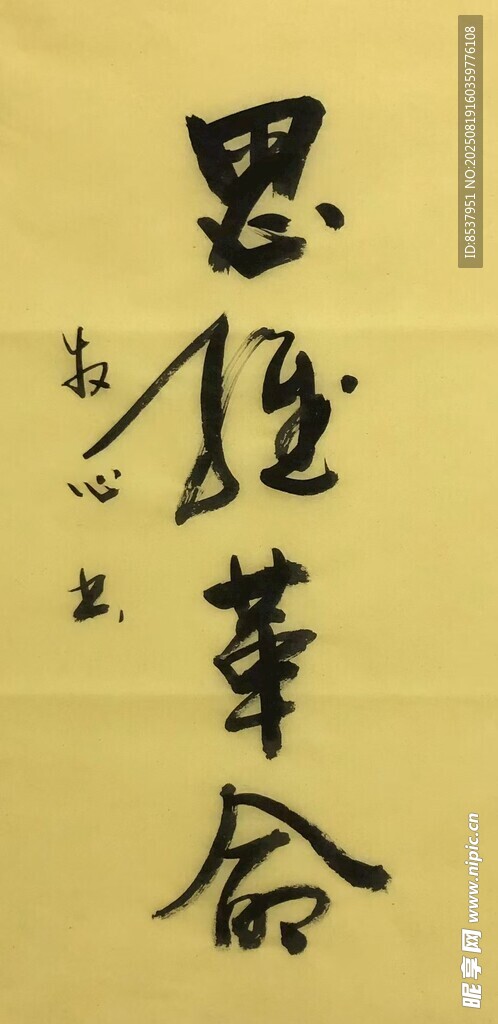 思维革命
牧心书
ID:8537951 NO:20250819160359776108
昵享网 www.nipic.cn